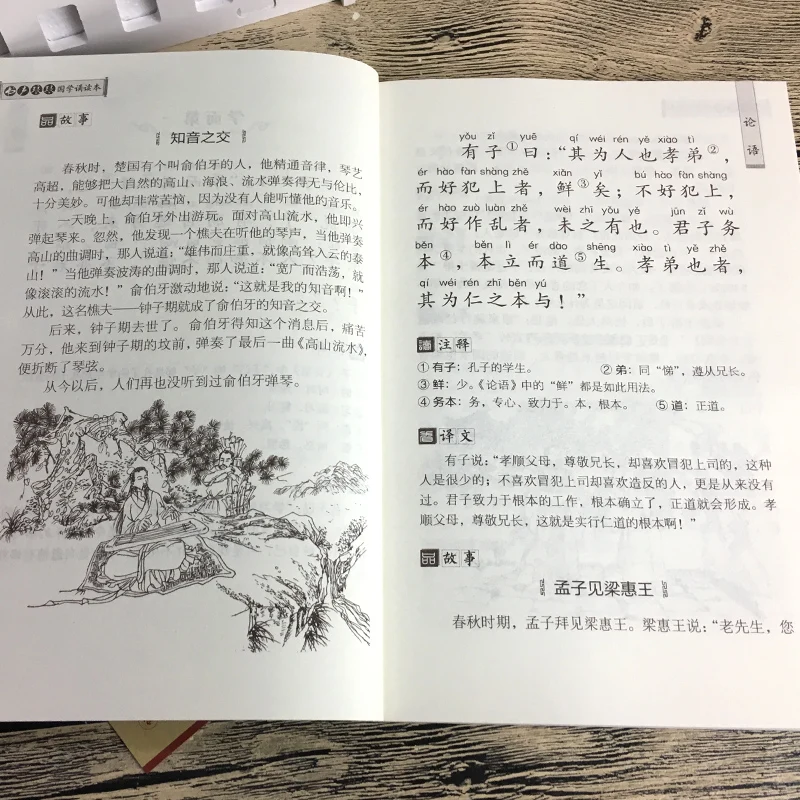 国学诵读本
品故事
知音之交
春秋时，楚国有个叫俞伯牙的人，他精通音律，琴艺
高超，能够把大自然的高山、海浪、流水弹奏得无与伦比，
十分美妙。可他却非常苦恼，因为没有人能听懂他的音乐。
一天晚上，俞伯牙外出游玩。面对高山流水，他即兴
弹起琴来。忽然，他发现一个樵夫在听他的琴声，当他弹奏
高山的曲调时，那人说道：“雄伟而庄重，就像高耸入云的泰
山！”当他弹奏波涛的曲调时，那人说道：“宽广而浩荡，就
像滚滚的流水！”俞伯牙激动地说：“这就是我的知音啊！”
从此，这名樵夫——钟子期就成了俞伯牙的知音之交。
后来，钟子期去世了。俞伯牙得知这个消息后，痛苦
万分，他来到钟子期的坟前，弹奏了最后一曲《高山流水》，
便折断了琴弦。
从今以后，人们再也没听到过俞伯牙弹琴。
论语
yǒu zǐ yuē qí wéi rén yě xiào tì
有子①曰：“其为人也孝弟②，
ér hào fàn shàng zhě xiǎn yǐ bú hào fàn shàng
而好犯上者，鲜③矣；不好犯上，
ér hào zuò luàn zhě wèi zhī yǒu yě jūn zǐ wù
而好作乱者，未之有也。君子务
běn běn lì ér dào shēng xiào tì yě zhě
本④，本立而道⑤生。孝弟也者，
qí wéi rén zhī běn yú
其为仁之本与！”
读注释
①有子：孔子的学生。 ②弟：同“悌”，遵从兄长。
③鲜：少。《论语》中的“鲜”都是如此用法。
④务本：务，专心、致力于。本，根本。 ⑤道：正道。
看译文
有子说：“孝顺父母，尊敬兄长，却喜欢冒犯上司的，这种
人是很少的；不喜欢冒犯上司却喜欢造反的人，更是从来没有
过。君子致力于根本的工作，根本确立了，正道就会形成。孝
顺父母，尊敬兄长，这就是实行仁道的根本啊！”
品故事
孟子见梁惠王
春秋时期，孟子拜见梁惠王。梁惠王说：“老先生，您